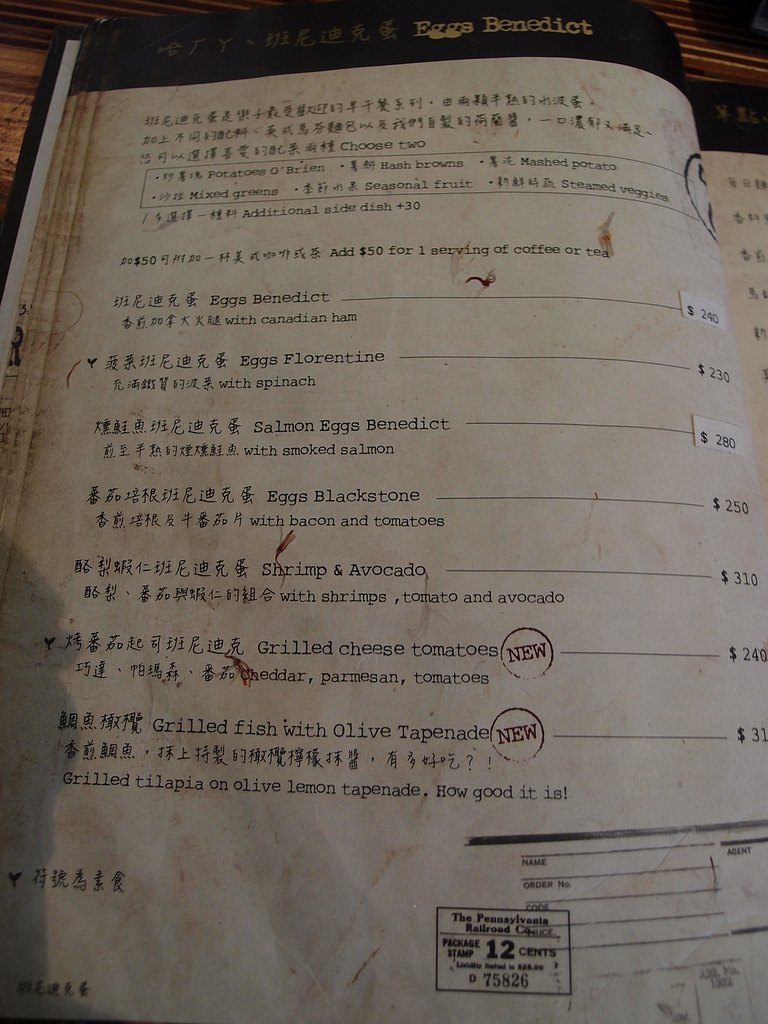 哈ㄏㄚ、班尼迪克蛋 Eggs Benedict
班尼迪克蛋是樂子最受歡迎的早午餐系列，由兩顆半熟的水波蛋，
加上不同的配料、英式馬芬麵包以及我們自製的荷蘭醬，一口濃郁又滿足~
您可以選擇喜愛的配菜兩種 Choose two
・炒薯塊 Potatoes O'Brien ・薯餅 Hash browns ・薯泥 Mashed potato
・沙拉 Mixed greens ・季節水果 Seasonal fruit ・新鮮時蔬 Steamed veggies
/ 多選擇一種料 Additional side dish +30
加$50可附加一杯美式咖啡或茶 Add $50 for 1 serving of coffee or tea
班尼迪克蛋 Eggs Benedict $ 240
香煎加拿大火腿 with canadian ham
菠菜班尼迪克蛋 Eggs Florentine $ 230
充滿鐵質的菠菜 with spinach
燻鮭魚班尼迪克蛋 Salmon Eggs Benedict $ 280
煎至半熟的煙燻鮭魚 with smoked salmon
蕃茄培根班尼迪克蛋 Eggs Blackstone $ 250
香煎培根及牛蕃茄片 with bacon and tomatoes
酪梨蝦仁班尼迪克蛋 Shrimp & Avocado $ 310
酪梨、蕃茄與蝦仁的組合 with shrimps ,tomato and avocado
烤蕃茄起司班尼迪克 Grilled cheese tomatoes NEW $ 240
巧達、帕瑪森、蕃茄 cheddar, parmesan, tomatoes
鯛魚橄欖 Grilled fish with Olive Tapenade NEW $ 31
香煎鯛魚，抹上特製的橄欖檸檬抹醬，有多好吃？！
Grilled tilapia on olive lemon tapenade. How good it is!
符號為素食
NAME
AGENT
ORDER No.
CODE
The Pennsylvania
Railroad Co.
PACKAGE STAMP 12 CENTS
Liability limited to $25.00
D 75826
班尼迪克蛋